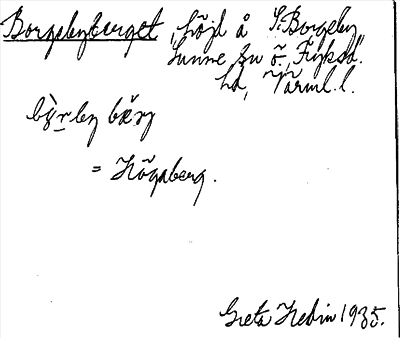 Borgebyberget, höjd å S. Borgeby
Sunne sn Ö, Fryksd.
hd, Värml. l.
bÿrby bärj
= Högaberg.
Greta Hedin 1935.